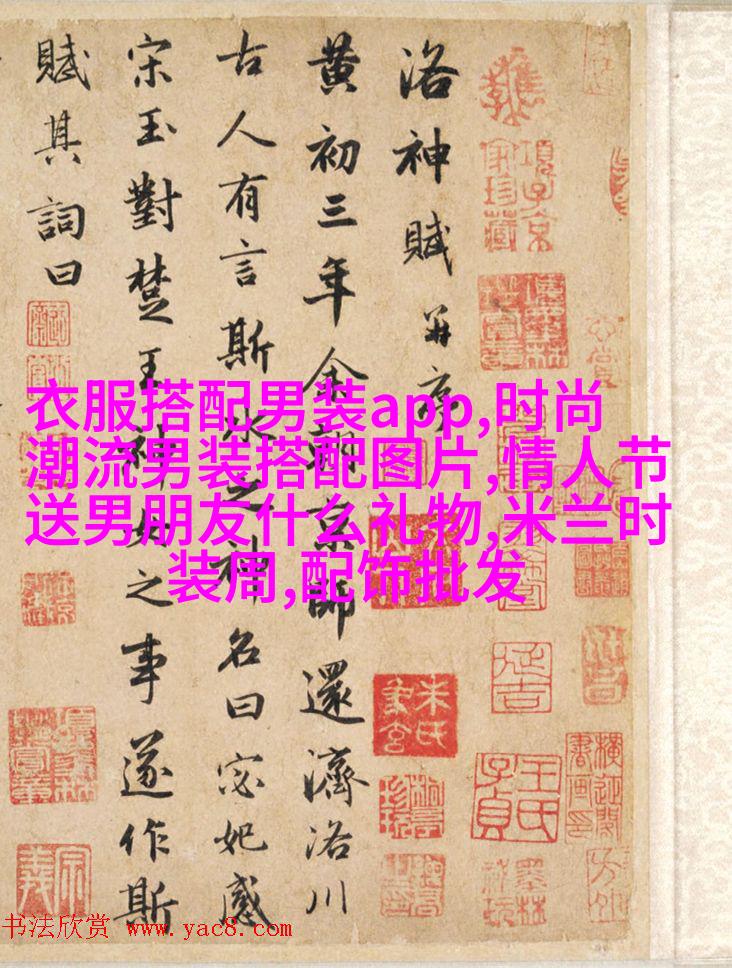 洛神賦并序
黄初三年余朝京師還濟洛川
古人有言斯水之神名曰宓妃感
宋玉對楚王神女之事遂作斯
賦其詞曰
項子京家珍藏
衣服搭配男装app,时尚
潮流男装搭配图片,情人节
送男朋友什么礼物,米兰时
装周,配饰批发
书法欣赏 www.yac8.com